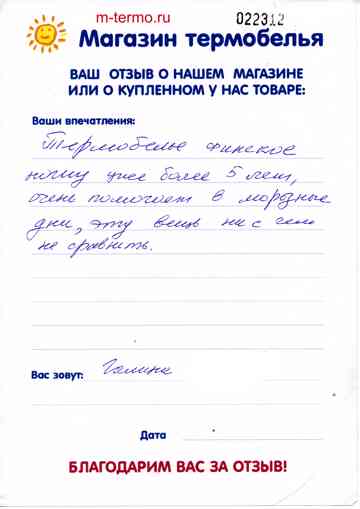 m-termo.ru
022312
Магазин термобелья
ВАШ ОТЗЫВ О НАШЕМ МАГАЗИНЕ
ИЛИ О КУПЛЕННОМ У НАС ТОВАРЕ:
Ваши впечатления:
Термобелье финское
ношу уже более 5 лет,
очень помогает в морозные
дни, эту вещь ни с чем
не сравнить.
Вас зовут: Галина
Дата
БЛАГОДАРИМ ВАС ЗА ОТЗЫВ!